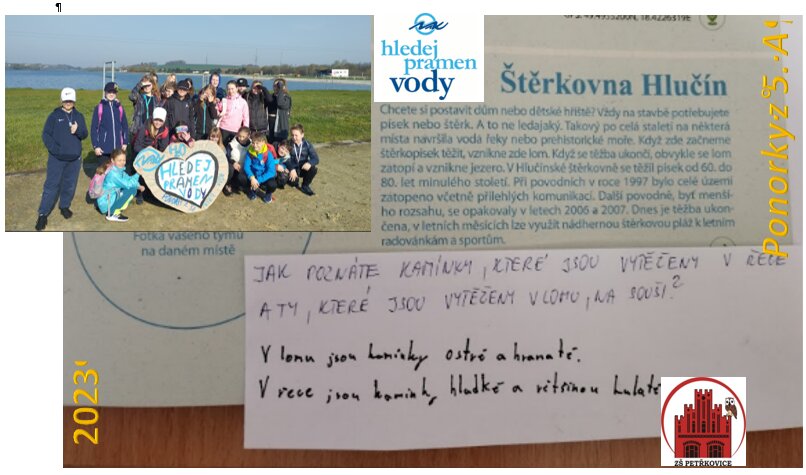 ¶
GPS: 49.4953200N, 18.4226319E
hledej
pramen
vody
Štěrkovna Hlučín
Chcete si postavit dům nebo dětské hřiště? Vždy na stavbě potřebujete
písek nebo štěrk. A to ne ledajaký. Takový po celá staletí na některá
místa navršila voda řeky nebo prehistorické moře. Když zde začneme
štěrkopísek těžit, vznikne zde lom. Když se těžba ukončí, obvykle se lom
zatopí a vznikne jezero. V Hlučínské štěrkovně se těžil písek od 60. do
80. let minulého století. Při povodních v roce 1997 bylo celé území
zatopeno včetně přilehlých komunikací. Další povodně, byť menší-
ho rozsahu, se opakovaly v letech 2006 a 2007. Dnes je těžba ukon-
čena, v letních měsících lze využít nádhernou štěrkovou pláž k letním
radovánkám a sportům.
HLEDEJ
PRAMEN
VODY
Fotka vašeho týmu
na daném místě
JAK POZNÁTE KAMÍNKY, KTERÉ JSOU VYTĚŽENY V ŘECE
A TY, KTERÉ JSOU VYTĚŽENY V LOMU, NA SOUŠI?
V lomu jsou kamínky ostré a hranaté.
V řece jsou kamínky hladké a většinou kulaté
Ponorky z 5. A
2023
ZŠ PETŘKOVICE